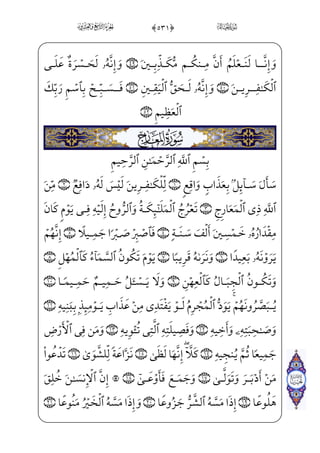 ﴿٥٣١﴾
وَإِنَّا لَنَعْلَمُ أَنَّ مِنكُم مُّكَذِّبِينَ ۝ وَإِنَّهُۥ لَحَسْرَةٌ عَلَى
ٱلْكَٰفِرِينَ ۝ وَإِنَّهُۥ لَحَقُّ ٱلْيَقِينِ ۝ فَسَبِّحْ بِٱسْمِ رَبِّكَ
ٱلْعَظِيمِ ۝
سُورَةُ ٱلْمَعَارِجِ
بِسْمِ ٱللَّهِ ٱلرَّحْمَٰنِ ٱلرَّحِيمِ
سَأَلَ سَآئِلٌۢ بِعَذَابٍ وَاقِعٍ ۝ لِّلْكَٰفِرِينَ لَيْسَ لَهُۥ دَافِعٌ ۝ مِّنَ
ٱللَّهِ ذِى ٱلْمَعَارِجِ ۝ تَعْرُجُ ٱلْمَلَٰٓئِكَةُ وَٱلرُّوحُ إِلَيْهِ فِى يَوْمٍ كَانَ
مِقْدَارُهُۥ خَمْسِينَ أَلْفَ سَنَةٍ ۝ فَٱصْبِرْ صَبْرًا جَمِيلًا ۝ إِنَّهُمْ
يَرَوْنَهُۥ بَعِيدًا ۝ وَنَرَىٰهُ قَرِيبًا ۝ يَوْمَ تَكُونُ ٱلسَّمَآءُ كَٱلْمُهْلِ ۝
وَتَكُونُ ٱلْجِبَالُ كَٱلْعِهْنِ ۝ وَلَا يَسْـَٔلُ حَمِيمٌ حَمِيمًا ۝
يُبَصَّرُونَهُمْ يَوَدُّ ٱلْمُجْرِمُ لَوْ يَفْتَدِى مِنْ عَذَابِ يَوْمِئِذٍۭ بِبَنِيهِ ۝
وَصَٰحِبَتِهِۦ وَأَخِيهِ ۝ وَفَصِيلَتِهِ ٱلَّتِى تُـْٔوِيهِ ۝ وَمَن فِى ٱلْأَرْضِ
جَمِيعًا ثُمَّ يُنجِيهِ ۝ كَلَّآ إِنَّهَا لَظَىٰ ۝ نَزَّاعَةً لِّلشَّوَىٰ ۝ تَدْعُوا۟
مَنْ أَدْبَرَ وَتَوَلَّىٰ ۝ وَجَمَعَ فَأَوْعَىٰٓ ۝ إِنَّ ٱلْإِنسَٰنَ خُلِقَ
هَلُوعًا ۝ إِذَا مَسَّهُ ٱلشَّرُّ جَزُوعًا ۝ وَإِذَا مَسَّهُ ٱلْخَيْرُ مَنُوعًا ۝